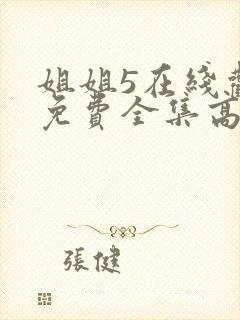 姐姐5在綫
免費全集高
張健